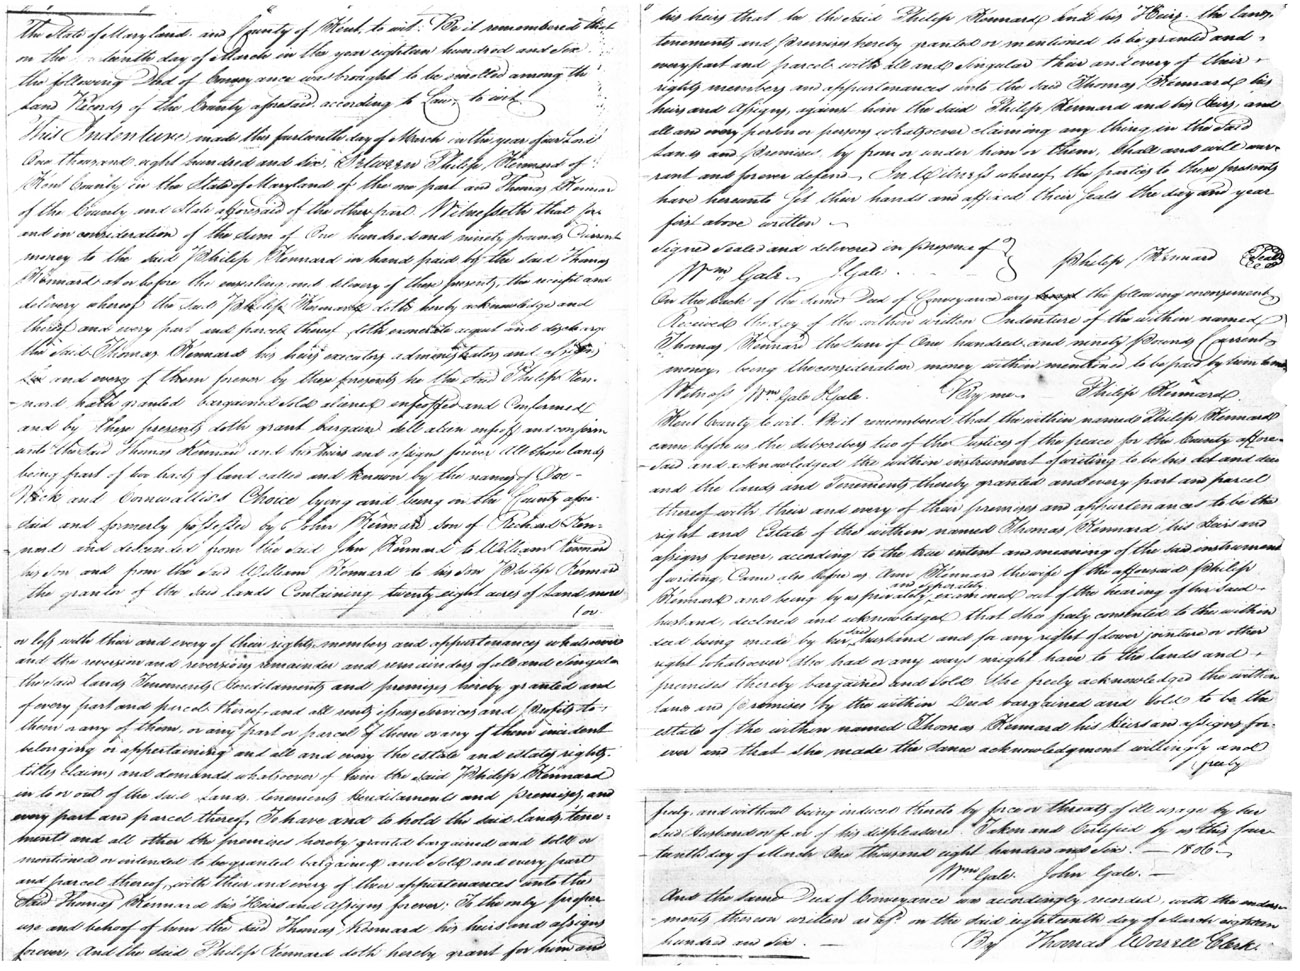 The State of Maryland and County of Kent, to wit: Be it remembered that
on the teenth day of March in the year eighteen hundred and six
the following Deed of Conveyance was brought to be enrolled among the
Land Records of the County aforesaid according to Law, to wit
This Indenture made this fourteenth day of March in the year of our Lord
One thousand eight hundred and six, Between Philip Kennard of
Kent County in the State of Maryland of the one part and Thomas Kennard
of the County and State afforesaid of the other part Witnesseth that for
and in consideration of the sum of One hundred and ninety pounds Current
money to the said Philip Kennard in hand paid by the said Thomas
Kennard at or before the ensealing and delivery of these presents, the receipt and
delivery whereof the said Philip Kennard doth hereby acknowledge and
thereof and every part and parcel thereof doth exonerate acquit and discharge
the said Thomas Kennard his heirs executors administrators and assigns
and every of them forever by these presents he the said Philip Ken-
nard hath granted bargained sold aliened infeoffed and Confirmed
and by these presents doth grant bargain sell alien infeoff and confirm
unto the said Thomas Kennard and his Heirs and assigns forever All those lands
being part of two tracts of land called and known by the names of
-wick and Cornwallis's Choice lying and being in the County afore
said and formerly possessed by John Kennard son of Richard Ken-
nard and descended from the said John Kennard to William Kennard
his son and from the said William Kennard to his son Philip Kennard
the grantor of the said lands Containing twenty eight acres of Land more
(or
or less with their and every of their rights members and appurtenances whatsoever
and the reversion and reversions remainder and remainders of all and singular
the said lands Tenements Heredilaments and premises hereby granted and
of every part and parcel thereof and all rents issues services and Profits to
them or any of them, or any part or parcel of them or any of them incident
belonging or appertaining and all and every the estate and estates rights
titles claims and demands whatsoever of him the said Philip Kennard
in to or out of the said Lands, tenements heredilaments and premises, and
every part and parcel thereof, To have and to hold the said lands, tene-
ments and all other the premises hereby granted bargained and sold or
mentioned or intended to be granted bargained and Sold and every part
and parcel thereof, with their and every of their appurtenances unto the
said Thomas Kennard his Heirs and Assigns forever. To the only proper
use and behoof of him the said Thomas Kennard his heirs and assigns
forever, And the said Philip Kennard doth hereby grant for him and
his heirs that he the said Philip Kennard and his Heirs the lands
tenements and premises hereby granted or mentioned to be granted and
every part and parcel with all and singular their and every of their
rights members and appurtenances unto the said Thomas Kennard his
heirs and Assigns, against him the said Philip Kennard and his Heirs, and
all and every person or persons whatsoever claiming any thing in the said
Lands and Premises by from or under him or them, shall and will war-
rant and forever defend. In Witness whereof the parties to these presents
have hereunto set their hands and affixed their seals the day and year
first above written
Signed Sealed and delivered in presence of
Philip Kennard Seal
Wm Gale. J Gale.
On the back of the same Deed of Conveyance was the following endorsement
Received the day of the within written Indenture of the within named
Thomas Kennard the sum of One hundred and ninety Pounds Current
money being the consideration money within mentioned to be paid by him to me
Witness Wm Gale J Gale. By me Philip Kennard
Kent County to wit. Be it remembered that the within named Philip Kennard
came before us the subscribers two of the Justices of the peace for the County afore-
said and acknowledged the within instrument of writing to be his act and deed
and the lands and Tenements thereby granted and every part and parcel
thereof with their and every of their premises and appurtenances to be the
right and Estate of the within named Thomas Kennard his Heirs and
assigns forever, according to the true intent and meaning of the said instrument
of writing. Came also before us Ann Kennard the wife of the afforesaid Philip
Kennard and being by us privately and apparately examined out of the hearing of her said
husband, declared and acknowledged that she freely consented to the within
deed being made by her said husband and for any right of dower jointure or other
right whatsoever she had or any ways might have to the lands and
premises thereby bargained and sold. She freely acknowledged the within
land and Premises by the within Deed bargained and sold to be the
estate of the within named Thomas Kennard his Heirs and assigns for-
ever and that she made the same acknowledgment willingly and
freely
freely, and without being induced thereto by force or threats of ill usage by her
said Husband or fear of his displeasure. Taken and Certified by us this four-
teenth day of March One thousand eight hundred and six. — 1806
Wm Gale. John Gale. —
And the same Deed of Conveyance was accordingly recorded, with the endorse-
ments thereon written as of on the said eighteenth day of March eighteen
hundred and six. — By Thomas Worrell Clerk